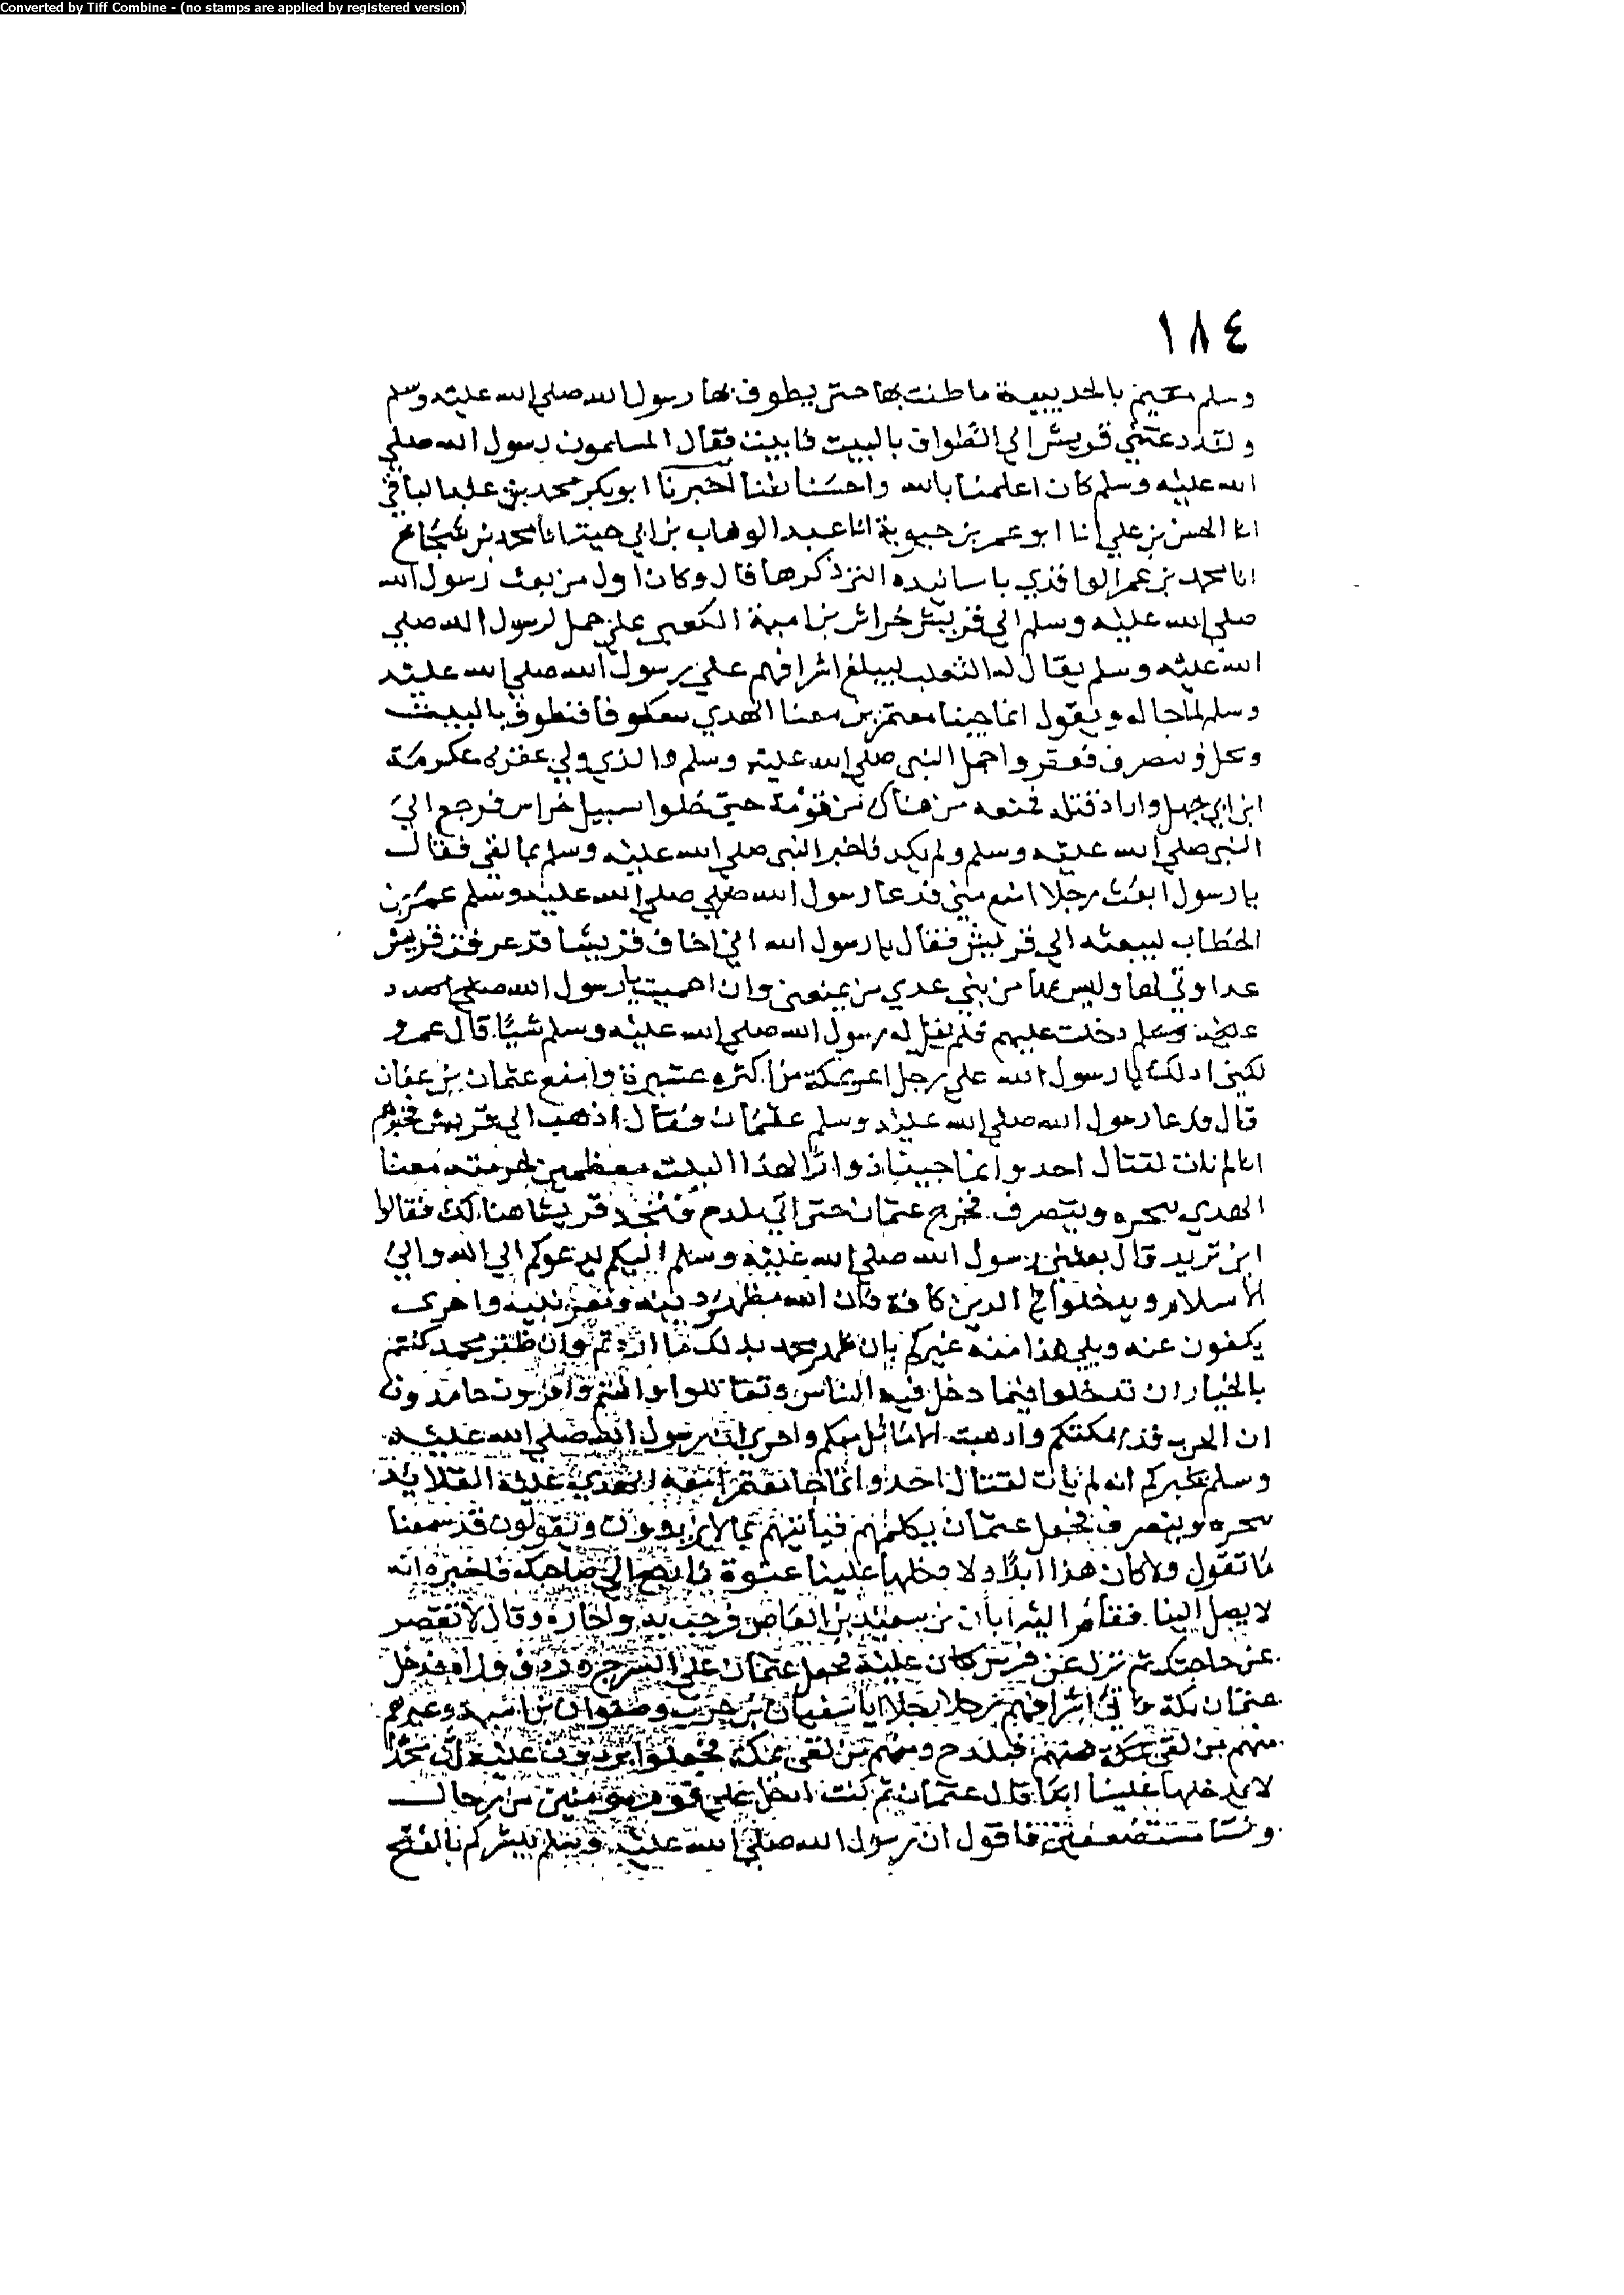 Converted by Tiff Combine - (no stamps are applied by registered version)
١٨٤
وسلم مقيم بالحديبية ما طفت بها حتى يطوف بها رسول الله صلى الله عليه وسلم
ولقد دعتني قريش الى الطواف بالبيت فابيت فقال المسلمون رسول الله صلي
الله عليه وسلم كان اعلمنا بالله واحسننا ظنا اخبرنا ابو بكر محمد بن عبد الباقي
انا الحسن بن علي انا ابو عمر بن حيوية انا عبد الوهاب بن ابي حية انا محمد بن شجاع
انا محمد بن عمر الواقدي باسانيده التي ذكرها قال وكان اول من بعث رسول الله
صلي الله عليه وسلم الي قريش خراش بن امية الكعبي علي جمل لرسول الله صلي
الله عليه وسلم يقال له الثعلب ليبلغ اشرافهم عن رسول الله صلي الله عليه
وسلم لما جا له ويقول انما جينا معتمرين معنا الهدي معكوفا فنطوف بالبيت
ونحل وننصرف فعقروا جمل النبي صلي الله عليه وسلم والذي ولي عقره عكرمة
ابن ابي جهل واراد قتله فمنعه من هناك من قومه حتي خلوا سبيل خراش فرجع الي
النبي صلي الله عليه وسلم ولم يكد فاخبر النبي صلي الله عليه وسلم بما لقي فقال
يا رسول ابعث رجلا امنع مني فدعا رسول الله صلي صلي الله عليه وسلم عمر بن
الخطاب ليبعثه الي قريش فقال يا رسول الله اني اخاف قريشا قد عرفت قريش
عداوتي لها وليس بها من بني عدي من يمنعني وان احببت يا رسول الله صلي الله
عليه وسلم دخلت عليهم فلم يقل له رسول الله صلي الله عليه وسلم شيئا قال عمر و
لكني ادلك يا رسول الله علي رجل اعز بمكة مني اكثره عشيرة وامنع عثمان بن عفان
قال فدعا رسول الله صلي الله عليه وسلم عثمان فقال اذهب الي قريش فخبرهم
انا لم نات لقتال احد وانما جينا زوارا لهذا البيت معظمين لحرمته معنا
الهدي ننحره وننصرف فخرج عثمان حتى اتي بلدح فنجد قريشا هنالك فقالوا
اين تريد قال بعثني رسول الله صلي الله عليه وسلم اليكم يدعوكم الي الله والي
الاسلام وتدخلوا في الدين كافة فان الله مظهر دينه ومعز نبيه واخرى
يكفون عنه ويلي هذا منه غيركم فان ظهر بمحمد بذلك ما اردتم وان ظفر محمد كنتم
بالخيار ان تدخلوا فيما دخل فيه الناس وتقاتلوا وانتم وافرون جامدون
ان الحرب قد نهكتكم واذهبت الاماثل منكم واخري ان رسول الله صلي الله عليه
وسلم يخبركم انه لم يات لقتال احد وانما جا معتمرا معه الهدي عليه القلايد
ينحره وينصرف فجعل عثمان يكلمهم فياتيهم بما لا يريدون ويقولون قد سمعنا
ما تقول ولا كان هذا ابدا ولا دخلها علينا عنوة فارجع الي صاحبك فاخبره انه
لا يصل الينا فقام اليه ابان بن سعيد بن العاص فرحب به واجاره وقال لا تقصر
عن حاجتك ثم نزل عن فرس كان عليه فحمل عثمان علي السرج وردف وراه فدخل
عثمان مكة فاتي اشرافهم رجلا رجلا ابا سفيان بن حرب وصفوان بن امية وغيرهم
منهم من لقي ببلدح ومنهم من لقي بمكة فجعلوا يردون عليه ان محمدا
لا يدخلها علينا ابدا قال عثمان ثم كنت ادخل علي قوم مومنين من رجال
ونسا مستضعفين فاقول ان رسول الله صلي الله عليه وسلم يبشركم بالفتح